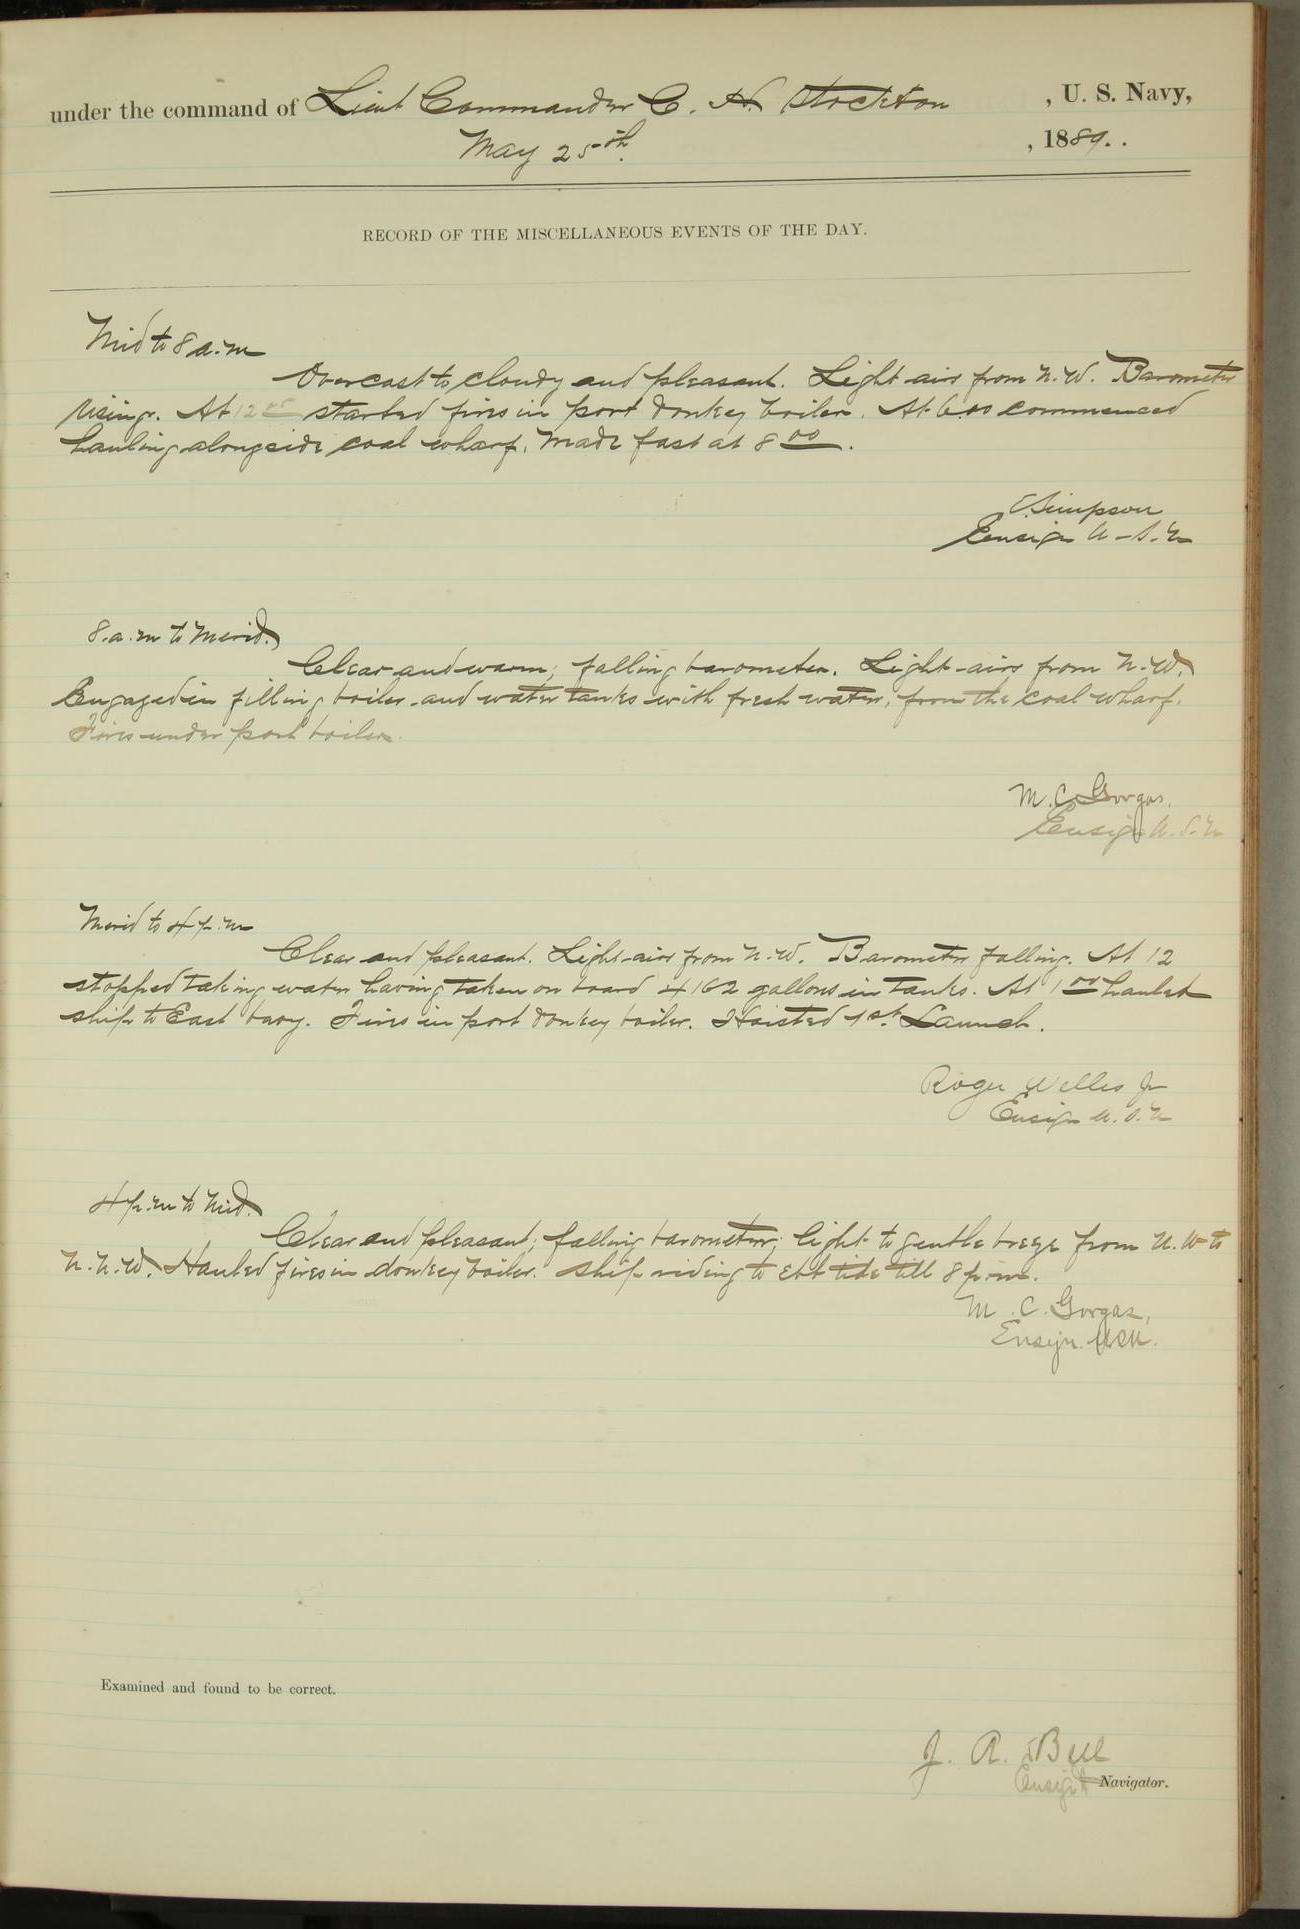 under the command of Lieut Commander C. H. Stockton , U. S. Navy,
May 25th , 1889. .
RECORD OF THE MISCELLANEOUS EVENTS OF THE DAY.
Mid to 8 a.m
Overcast to cloudy and pleasant. Light airs from N.W. Barometer
rising. At 12 started fires in port donkey boiler. At 6.00 commenced
hauling alongside coal wharf, made fast at 8 00.
E Simpson
Ensign U-S.N
8.a.m to Merid.
Clear and warm; falling barometer. Light airs from N.W.
Engaged in filling boiler and water tanks with fresh water, from the coal wharf.
Fires under port boiler.
M. C. Gorgas.
Ensign U.S.N
Merid to 4 p.m
Clear and pleasant. Light airs from N.W. Barometer falling. At 12
stopped taking water having taken on board 4162 gallons in tanks. At 1 00 hauled
ship to East buoy. Fires in port donkey boiler. Hoisted 1st Launch.
Roger Welles Jr
Ensign U.S.N
4 p.m to Mid.
Clear and pleasant; falling barometer; light to gentle breeze from N.W to
N.N.W. Hauled fires in donkey boiler. Ship riding to ebb tide till 8 p.m.
M. C. Gorgas,
Ensign. USN.
Examined and found to be correct.
J. A. Bell
Ensign Navigator.